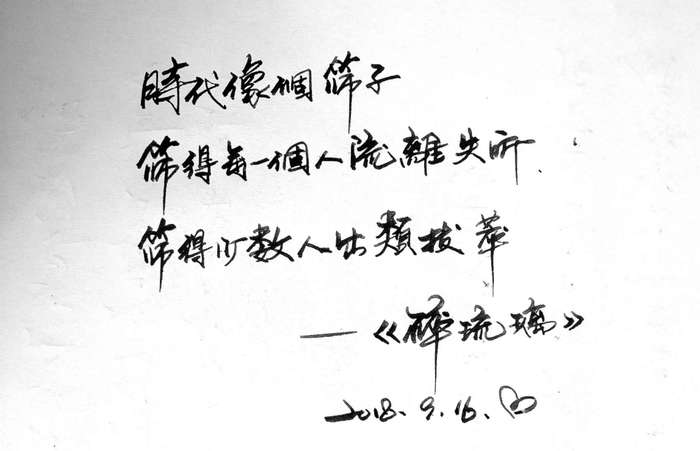 時代像個筛子
筛得每一個人流離失所
筛得少数人出類拔萃
——《碎琉璃》
2018.9.16.♡